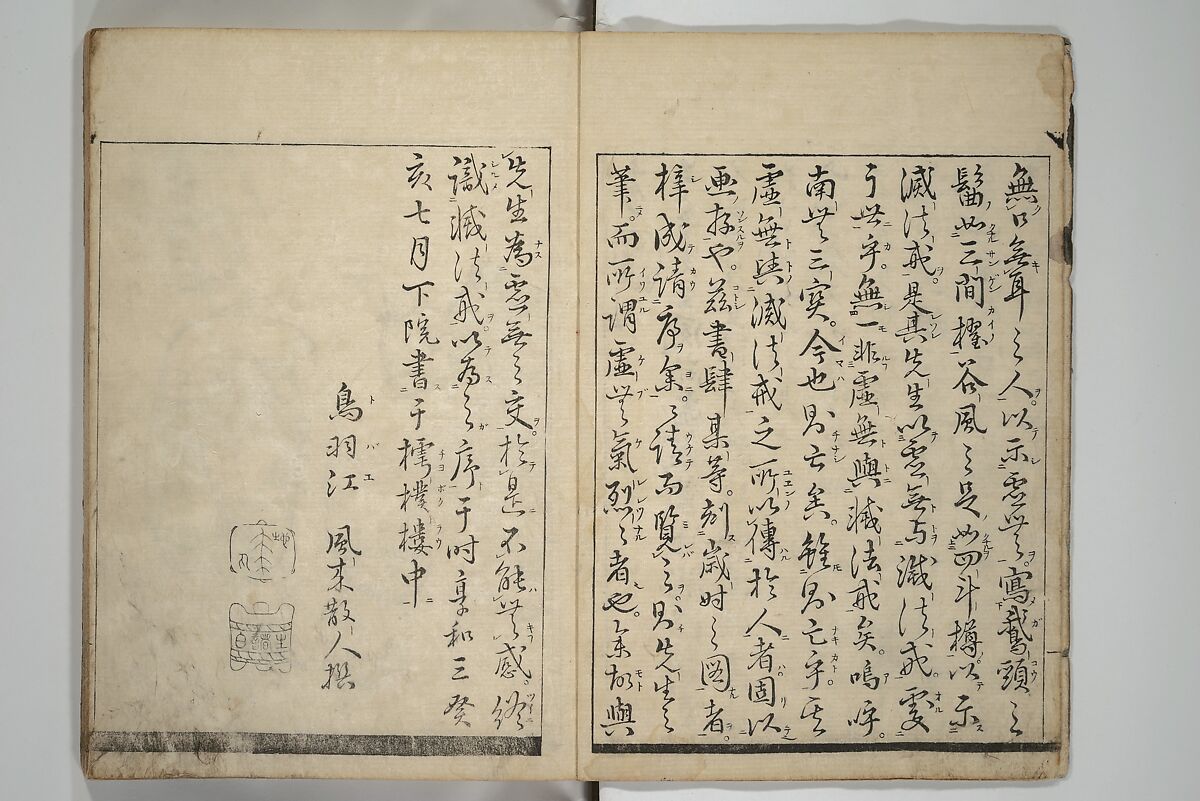 無口無耳之人以示虚無寫鵞頸之
髷如三間櫂谷風之足如四斗樽以示
滅法戒是其先生以虚無与滅法戒
于世乎無一非虚無與滅法戒矣嗚呼
南無三宝今也則亡矣雖則亡乎
虚無與滅法戒之所以傳於人者固以
画存也茲書肆某等刻歳時之図者
梓成請序余之請而覧之則先生之
筆而所謂虚無氣烈之者也余故與
先生為虚無之交於是不能無感
識滅法戒以為之序于時享和三癸
亥七月下院書于樗樸樓中
鳥羽江 風来散人撰